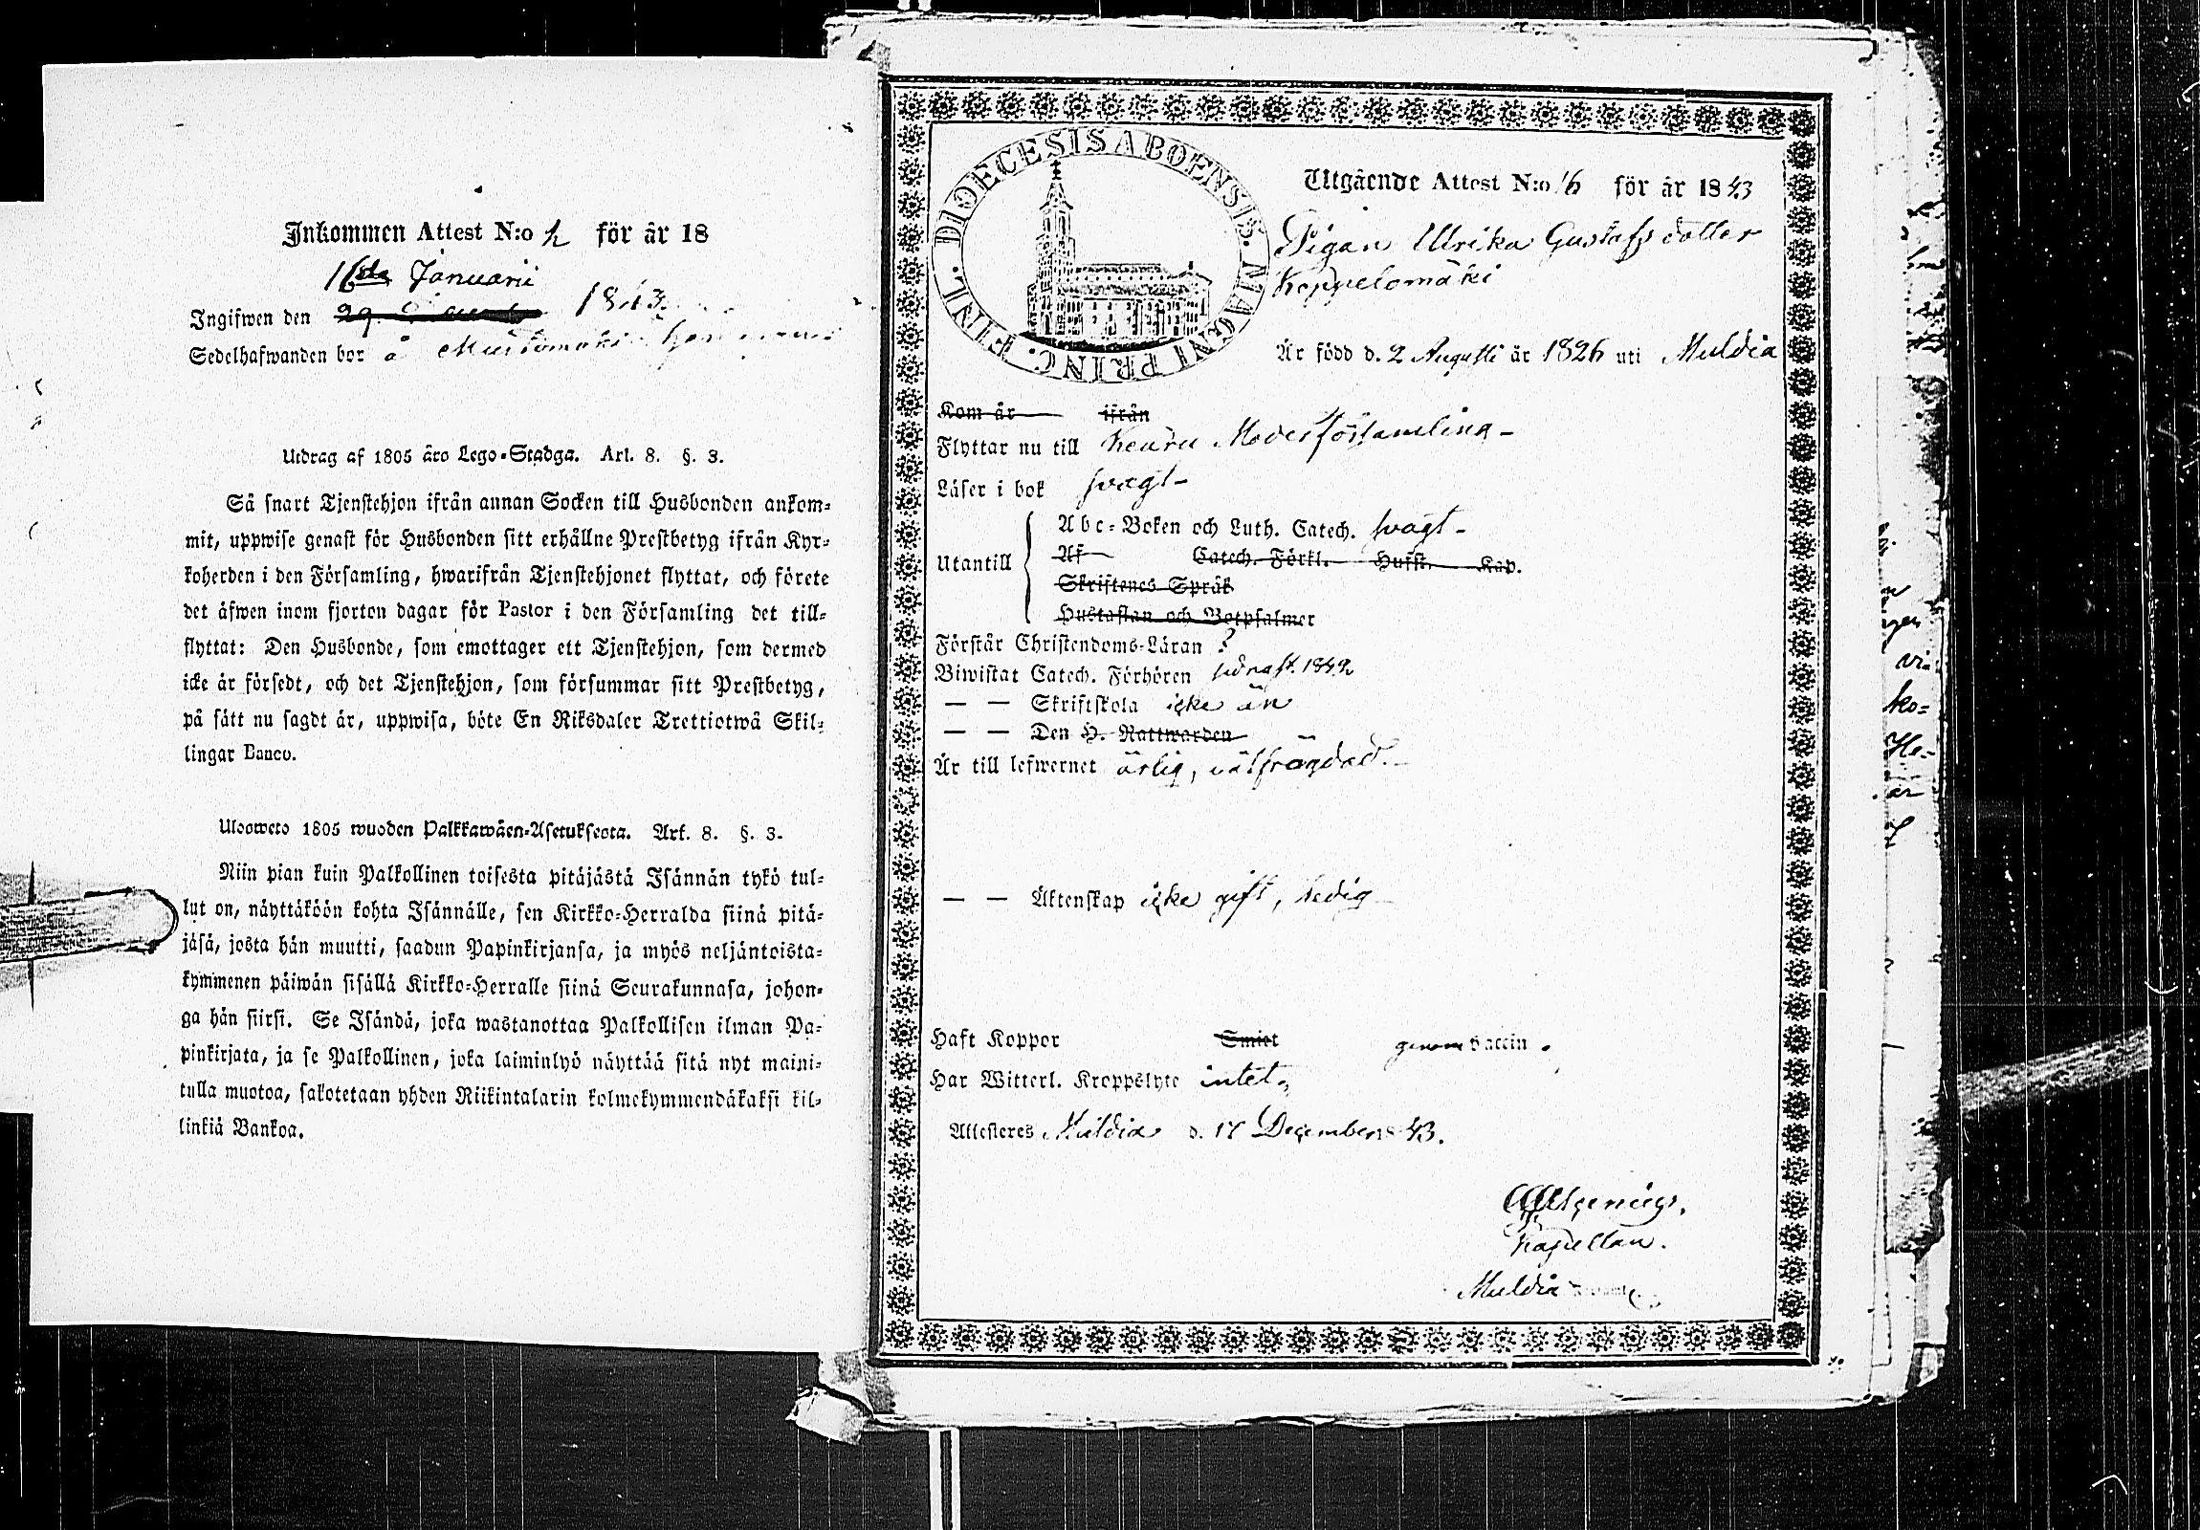 Inkommen Attest N:o 2 för år 18
16de Januarii
Ingifwen den 29 1843.
Sedelhafwanden bor å Mustomäki hemman
Utdrag af 1805 års Lego-Stadga. Art. 8. §. 3.
Så snart Tjenstehjon ifrån annan Socken till Husbonden ankom-
mit, uppwise genast för Husbonden sitt erhållne Prestbetyg ifrån Kyr-
koherden i den Församling, hwarifrån Tjenstehjonet flyttat, och förete
det äfwen inom fjorton dagar för Pastor i den Församling det till-
flyttat: Den Husbonde, som emottager ett Tjenstehjon, som dermed
icke är försedt, och det Tjenstehjon, som försummar sitt Prestbetyg,
på sätt nu sagdt är, uppwisa, böte En Riksdaler Trettiotwå Skil-
lingar Banco.
Ulosweto 1805 wuoden Palkkawäen-Asetuksesta. Art. 8. §. 3.
Niin pian kuin Palkollinen toisesta pitäjästä Isännän tykö tul-
lut on, näyttäköön kohta Isännälle, sen Kirkko-Herralda siinä pitä-
jäsä, josta hän muutti, saadun Papinkirjansa, ja myös neljäntoista-
kymmenen päiwän sisällä Kirkko-Herralle siinä Seurakunnasa, johon-
ga hän siirsi. Se Isändä, joka wastanottaa Palkollisen ilman Pa-
pinkirjata, ja se Palkollinen, joka laiminlyö näyttää sitä nyt maini-
tulla muotoa, sakotetaan yhden Riikintalarin kolmekymmendäkaksi kil-
linkiä Bankoa.
DIOECESIS ABOENSIS. MAGNI PRINC. FINL.
Utgående Attest N:o 16 för år 1843
Pigan Ulrika Gustafsdotter
Koppelomäki
Är född d. 2 Augusti år 1826 uti Muldia
Kom år ifrån
Flyttar nu till Keuru Moderförsamling -
Läser i bok svagt -
Abc-Boken och Luth. Catech. svagt -
Utantill
Af Catech. Förkl. Hufst. Kap.
Skriftenes Språk
Hustaflan och Botpsalmer
Förstår Christendoms-Läran ?
Biwistat Catech. Förhören sidnast. 1842
— — Skriftskola icke än
— — Den H. Nattwarden
Är till lefwernet ärlig, välfrägdad. -
— — Äktenskap icke gift, ledig -
Haft Koppor Smist genom vaccin.
Har Witterl. Kroppslyte intet,
Attesteres Muldia d. 17 December 1843.
Kapellan.
Muldia